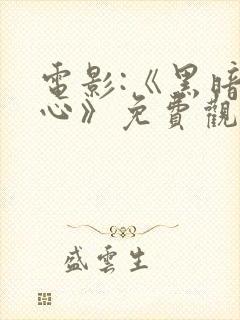 電影:《黑暗
心》免費觀
盛雲生